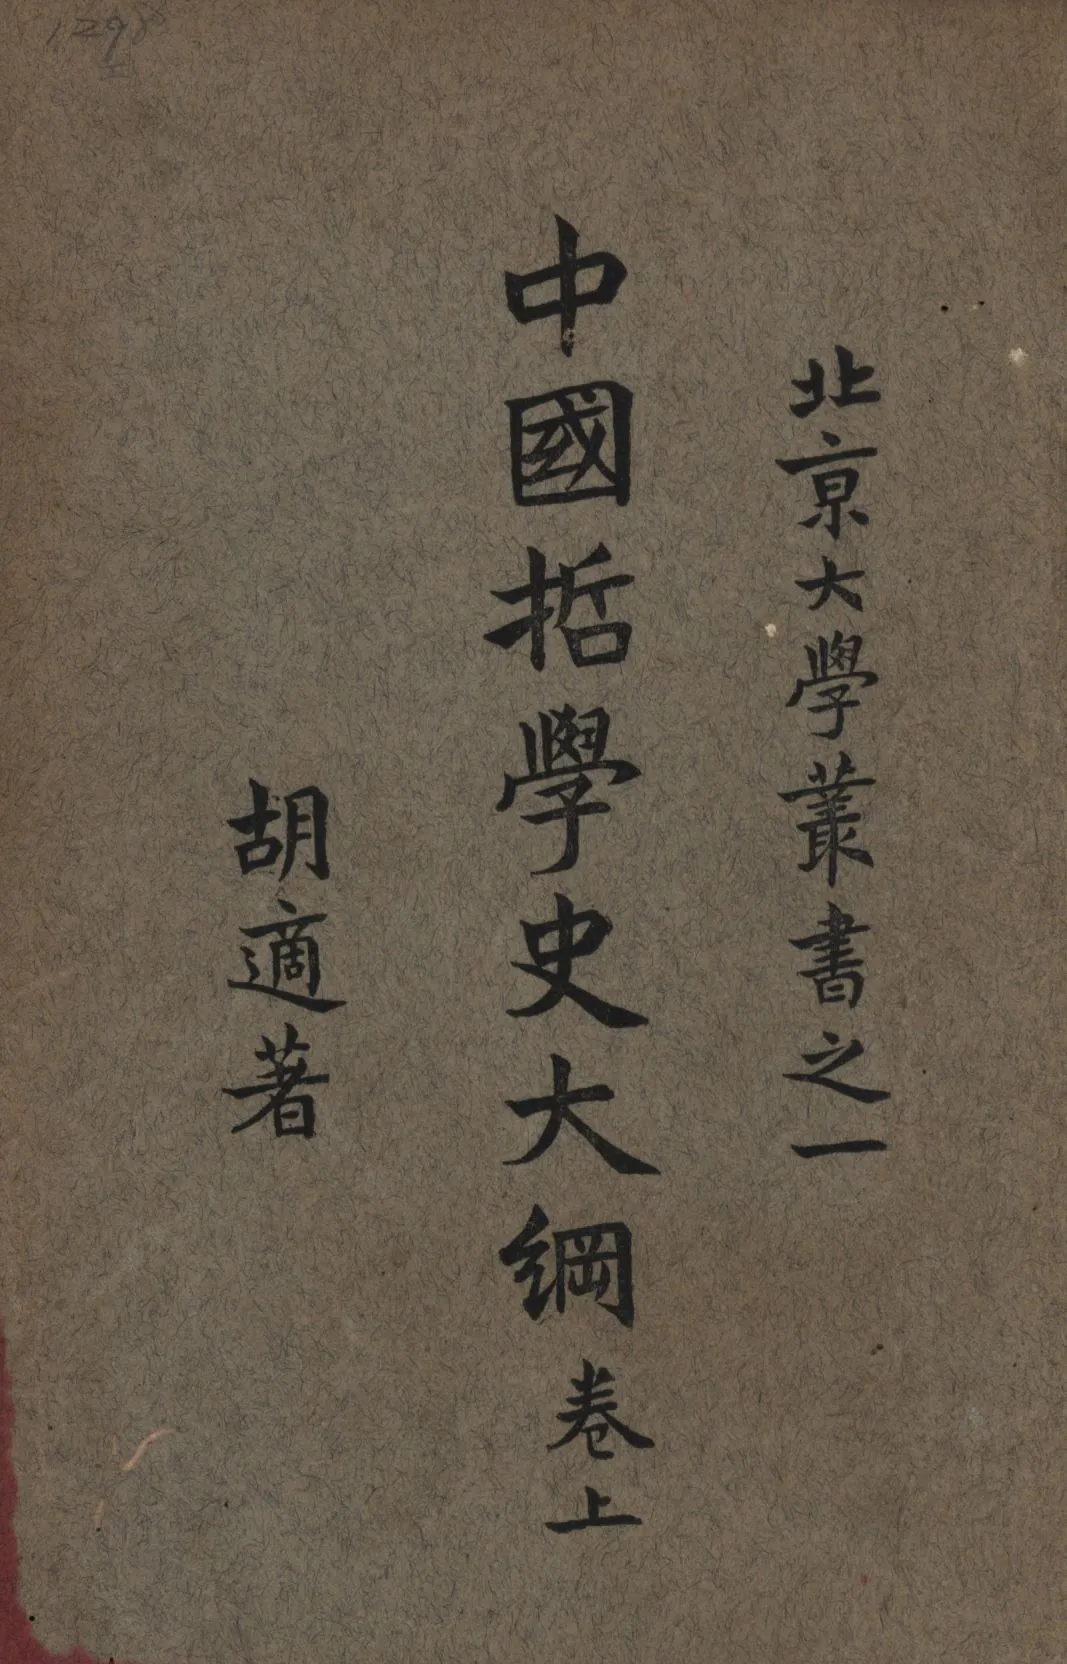 1298
北京大學叢書之一
中國哲學史大綱 卷上
胡適著